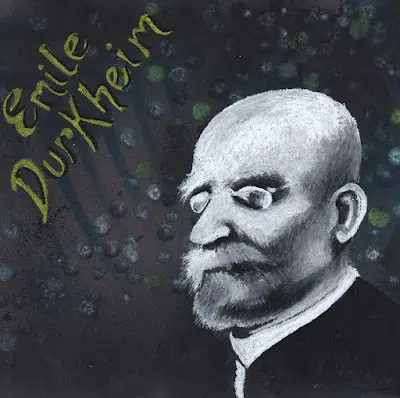 Emile
Durkheim